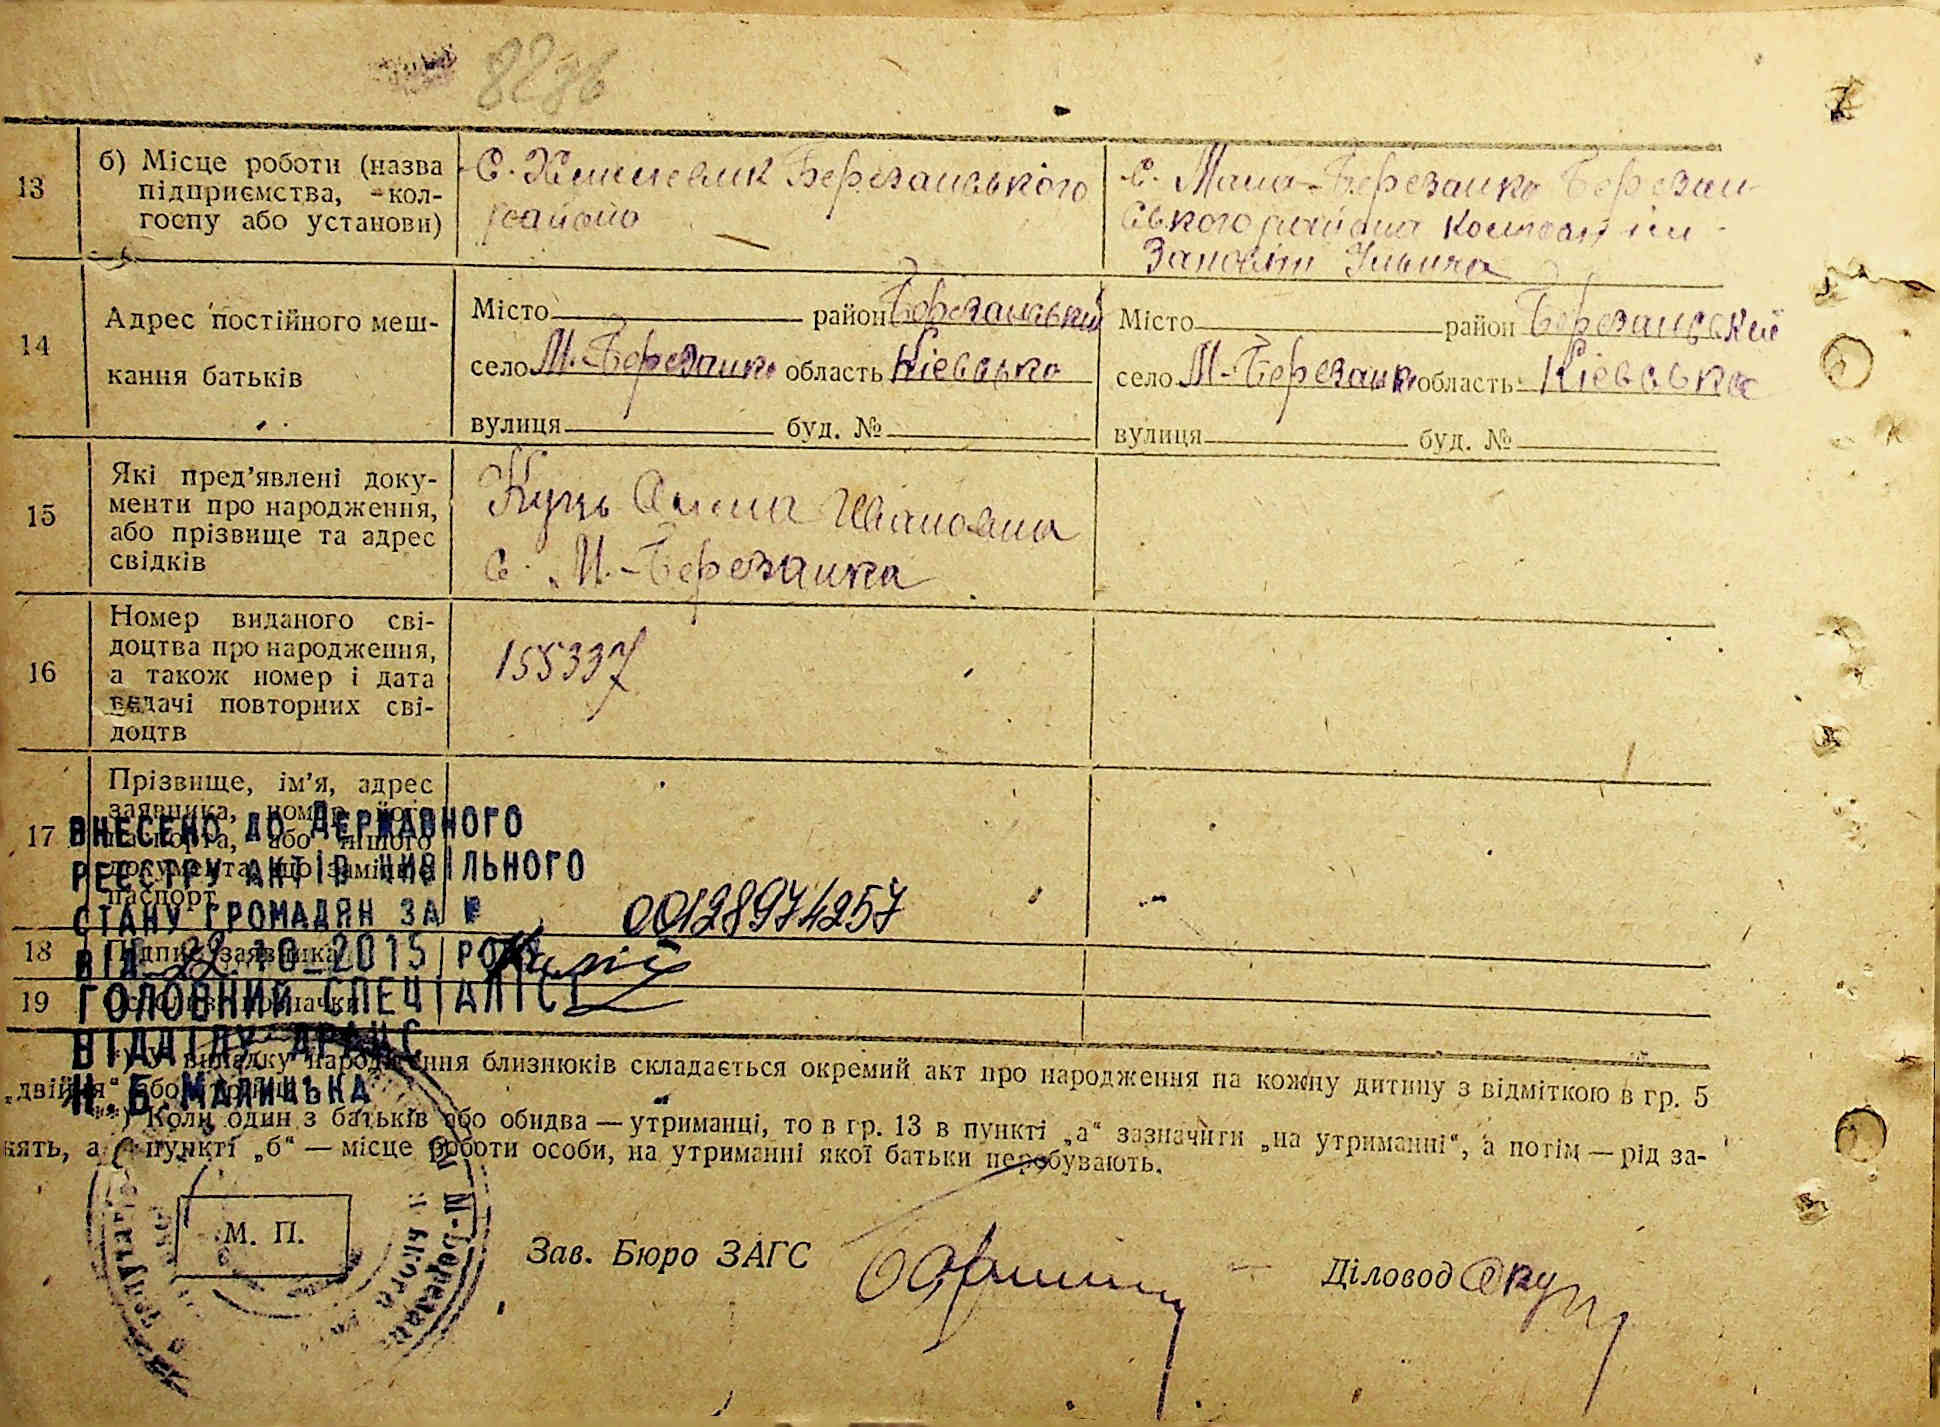 8236
13
б) Місце роботи (назва
підприємства, кол-
госпу або установи)
с. Березанського
району
с. Мала-Березанка Березан-
ського району колгосп ім
Заповіт Ильича
14
Адрес постійного меш-
кання батьків
Місто район Березанський
село М.-Березанка область Київська
вулиця буд. №
Місто район Березанський
село М-Березанка область Київська
вулиця буд. №
15
Які пред’явлені доку-
менти про народження,
або прізвище та адрес
свідків
Куць Ивановна
с. М.-Березанка
16
Номер виданого сві-
доцтва про народження,
а також номер і дата
видачі повторних сві-
доцтв
155337
17
Прізвище, ім’я, адрес
заявника, номер його
паспорта, або іншого
документа, що заміняє
паспорт
18
Підпис заявника
19
ВНЕСЕНО ДО ДЕРЖАВНОГО
РЕЄСТРУ АКТІВ ЦИВІЛЬНОГО
СТАНУ ГРОМАДЯН ЗА № 00128974257
ВІД 22.10 2015 РОКУ
ГОЛОВНИЙ СПЕЦІАЛІСТ
ВІДДІЛУ ДРАЦС
Н.Б.МАЛИЦЬКА
*) У випадку народження близнюків складається окремий акт про народження на кожну дитину з відміткою в гр. 5
„двійня“ або
**) Коли один з батьків або обидва — утриманці, то в гр. 13 в пункті „а“ зазначити „на утриманні“, а потім — рід за-
нять, а в пункті „б“ — місце роботи особи, на утриманні якої батьки перебувають.
М. П.
Зав. Бюро ЗАГС
Діловод